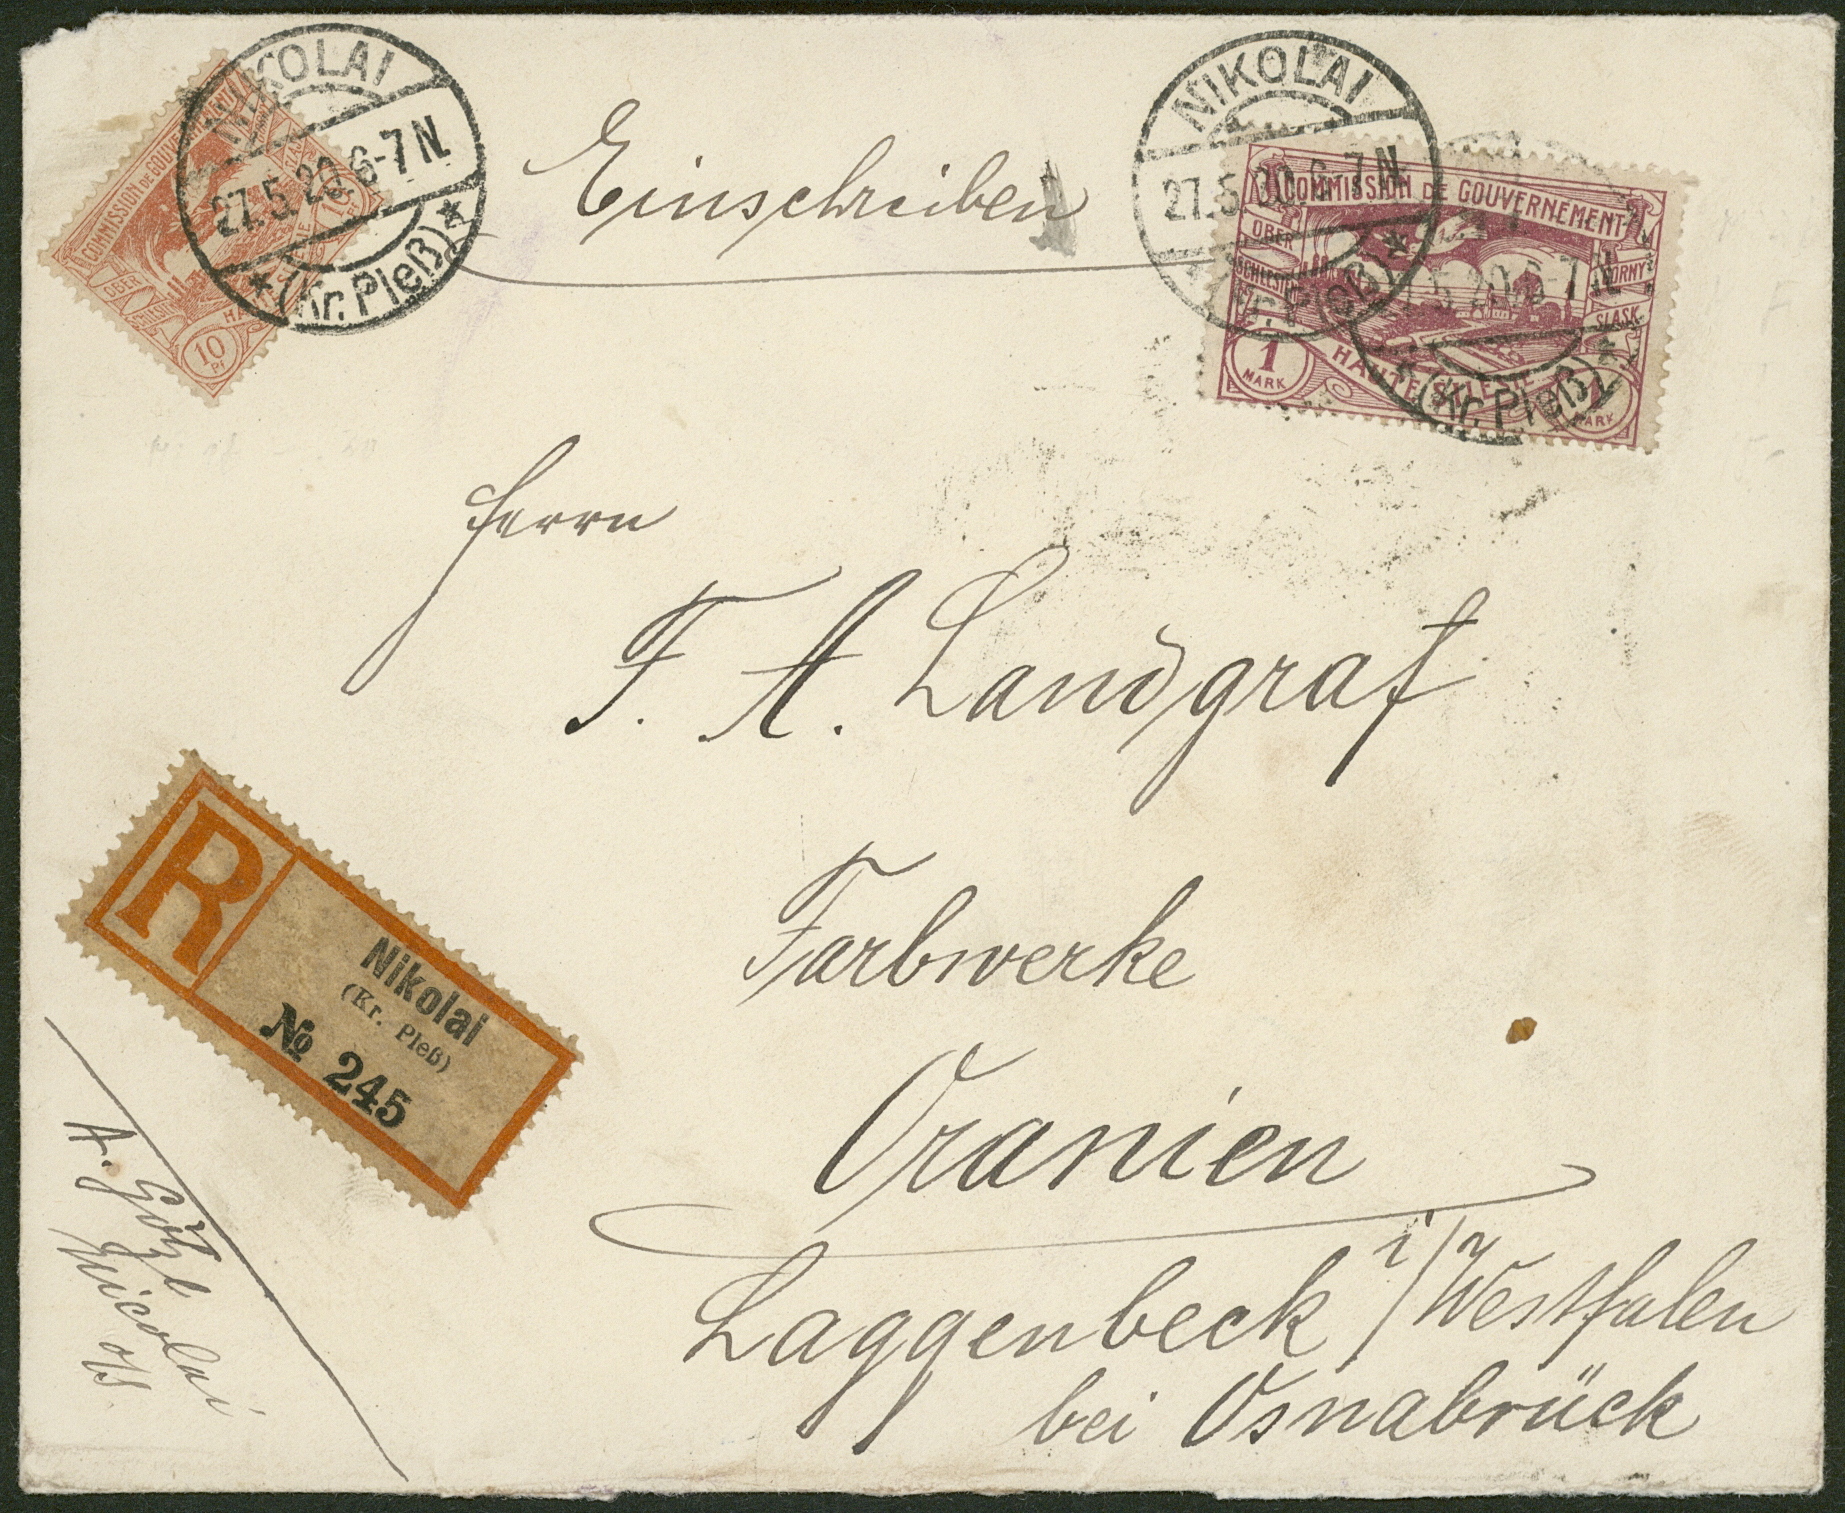 NIKOLAI
27.5.20.6-7N.
* (Kr. Pleß) *
COMMISSION DE GOUVERNEMENT
OBER
SCHLESIEN
10
Pf
Einschreiben
NIKOLAI
27.5.20.6-7N
COMMISSION DE GOUVERNEMENT
OBER
SCHLESIEN
GORNY
SLASK
HAUTE SILESIE
1
MARK
1
MARK
(Kr. Pleß)
Herrn
F. A. Landgraf
Farbwerke
Oranien
Laggenbeck i/Westfalen
bei Osnabrück
R
Nikolai
(Kr. Pleß)
№ 245
A. Götze
Nicolai
o/s